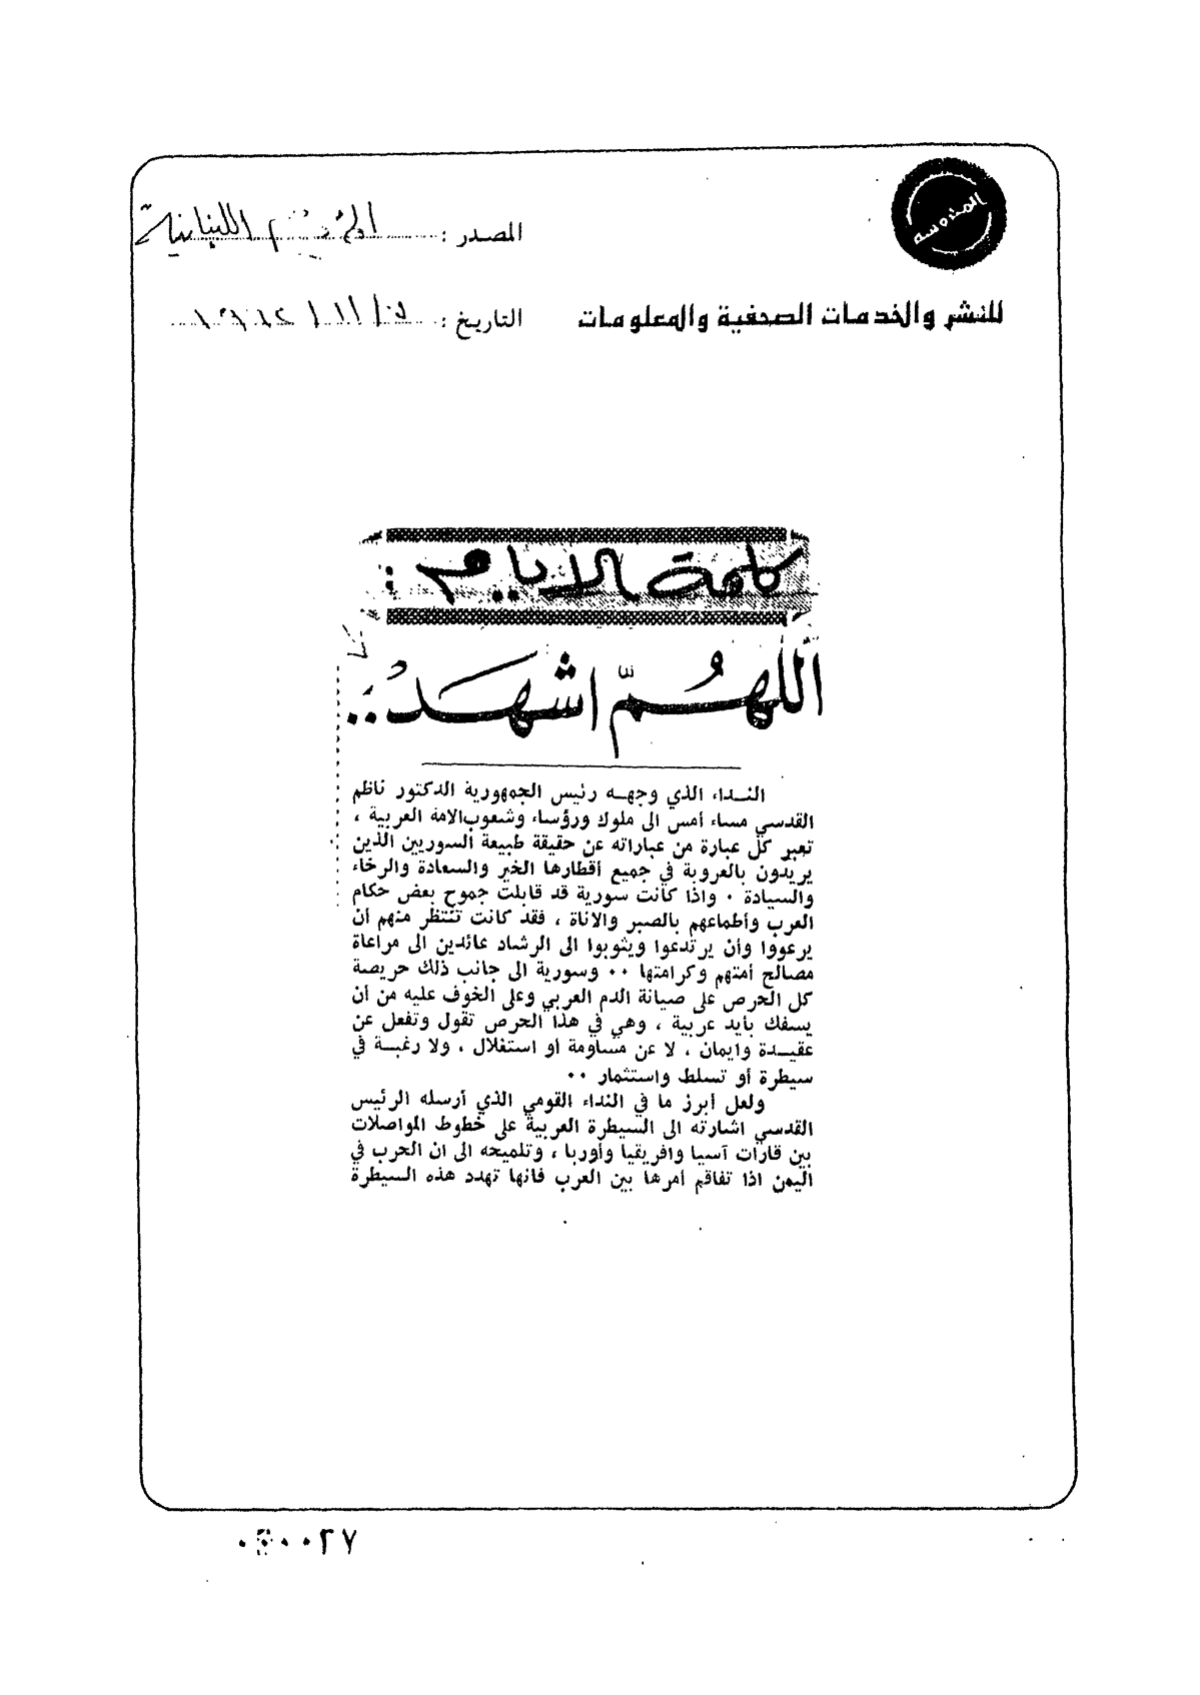 المصدر : اللبنانية
للنشر والخدمات الصحفية والمعلومات
التاريخ :
كلمة الايام :
اللهُمّ اشهدْ ..
النـداء الذي وجهـه رئيس الجمهورية الدكتور ناظم
القدسي مساء أمس الى ملوك ورؤساء وشعوب الامة العربية ،
تعبر كل عبارة من عباراته عن حقيقة طبيعة السوريين الذين
يريدون بالعروبة في جميع أقطارها الخير والسعادة والرخاء
والسيادة ٠ واذا كانت سورية قد قابلت جموح بعض حكام
العرب وأطماعهم بالصبر والاناة ، فقد كانت تنتظر منهم أن
يرعووا وأن يرتدعوا ويثوبوا الى الرشاد عائدين الى مراعاة
مصالح أمتهم وكرامتها ٠٠ وسورية الى جانب ذلك حريصة
كل الحرص على صيانة الدم العربي وعلى الخوف عليه من أن
يسفك بأيد عربية ، وهي في هذا الحرص تقول وتفعل عن
عقيـدة وايمان ، لا عن مساومة أو استغلال ، ولا رغبـة في
سيطرة أو تسلط واستثمار ٠٠
ولعل أبرز ما في النداء القومي الذي أرسله الرئيس
القدسي اشارته الى السيطرة العربية على خطوط المواصلات
بين قارات آسيا وافريقيا وأوربا ، وتلميحه الى ان الحرب في
اليمن اذا تفاقم أمرها بين العرب فانها تهدد هذه السيطرة